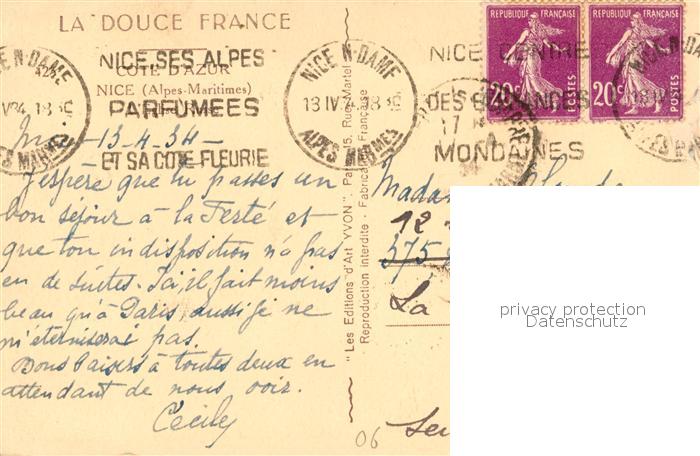 LA DOUCE FRANCE
NICE, SES ALPES
COTE D'AZUR
NICE (Alpes-Maritimes)
PARFUMEES
13-4-34-
ET SA COTE FLEURIE
J'espère que tu passes un
bon séjour à la Ferté et
que ton indisposition n'a pas
eu de suites. Ici, il fait moins
beau qu'à Paris, aussi je ne
m'éterniserai pas.
Bons baisers à toutes deux en
attendant de nous voir.
Cécily
NICE N-DAME
13 IV 34 18
ALPES MARMES
"Les Editions d'Art YVON". Paris, 15, Rue Martel
Reproduction interdite - Fabrication Française
NICE CENTRE
DES ELEGANCES
MONDAINES
REPUBLIQUE FRANÇAISE
20c
POSTES
REPUBLIQUE FRANÇAISE
20c
POSTES
Madam
12
375
La
06
privacy protection
Datenschutz